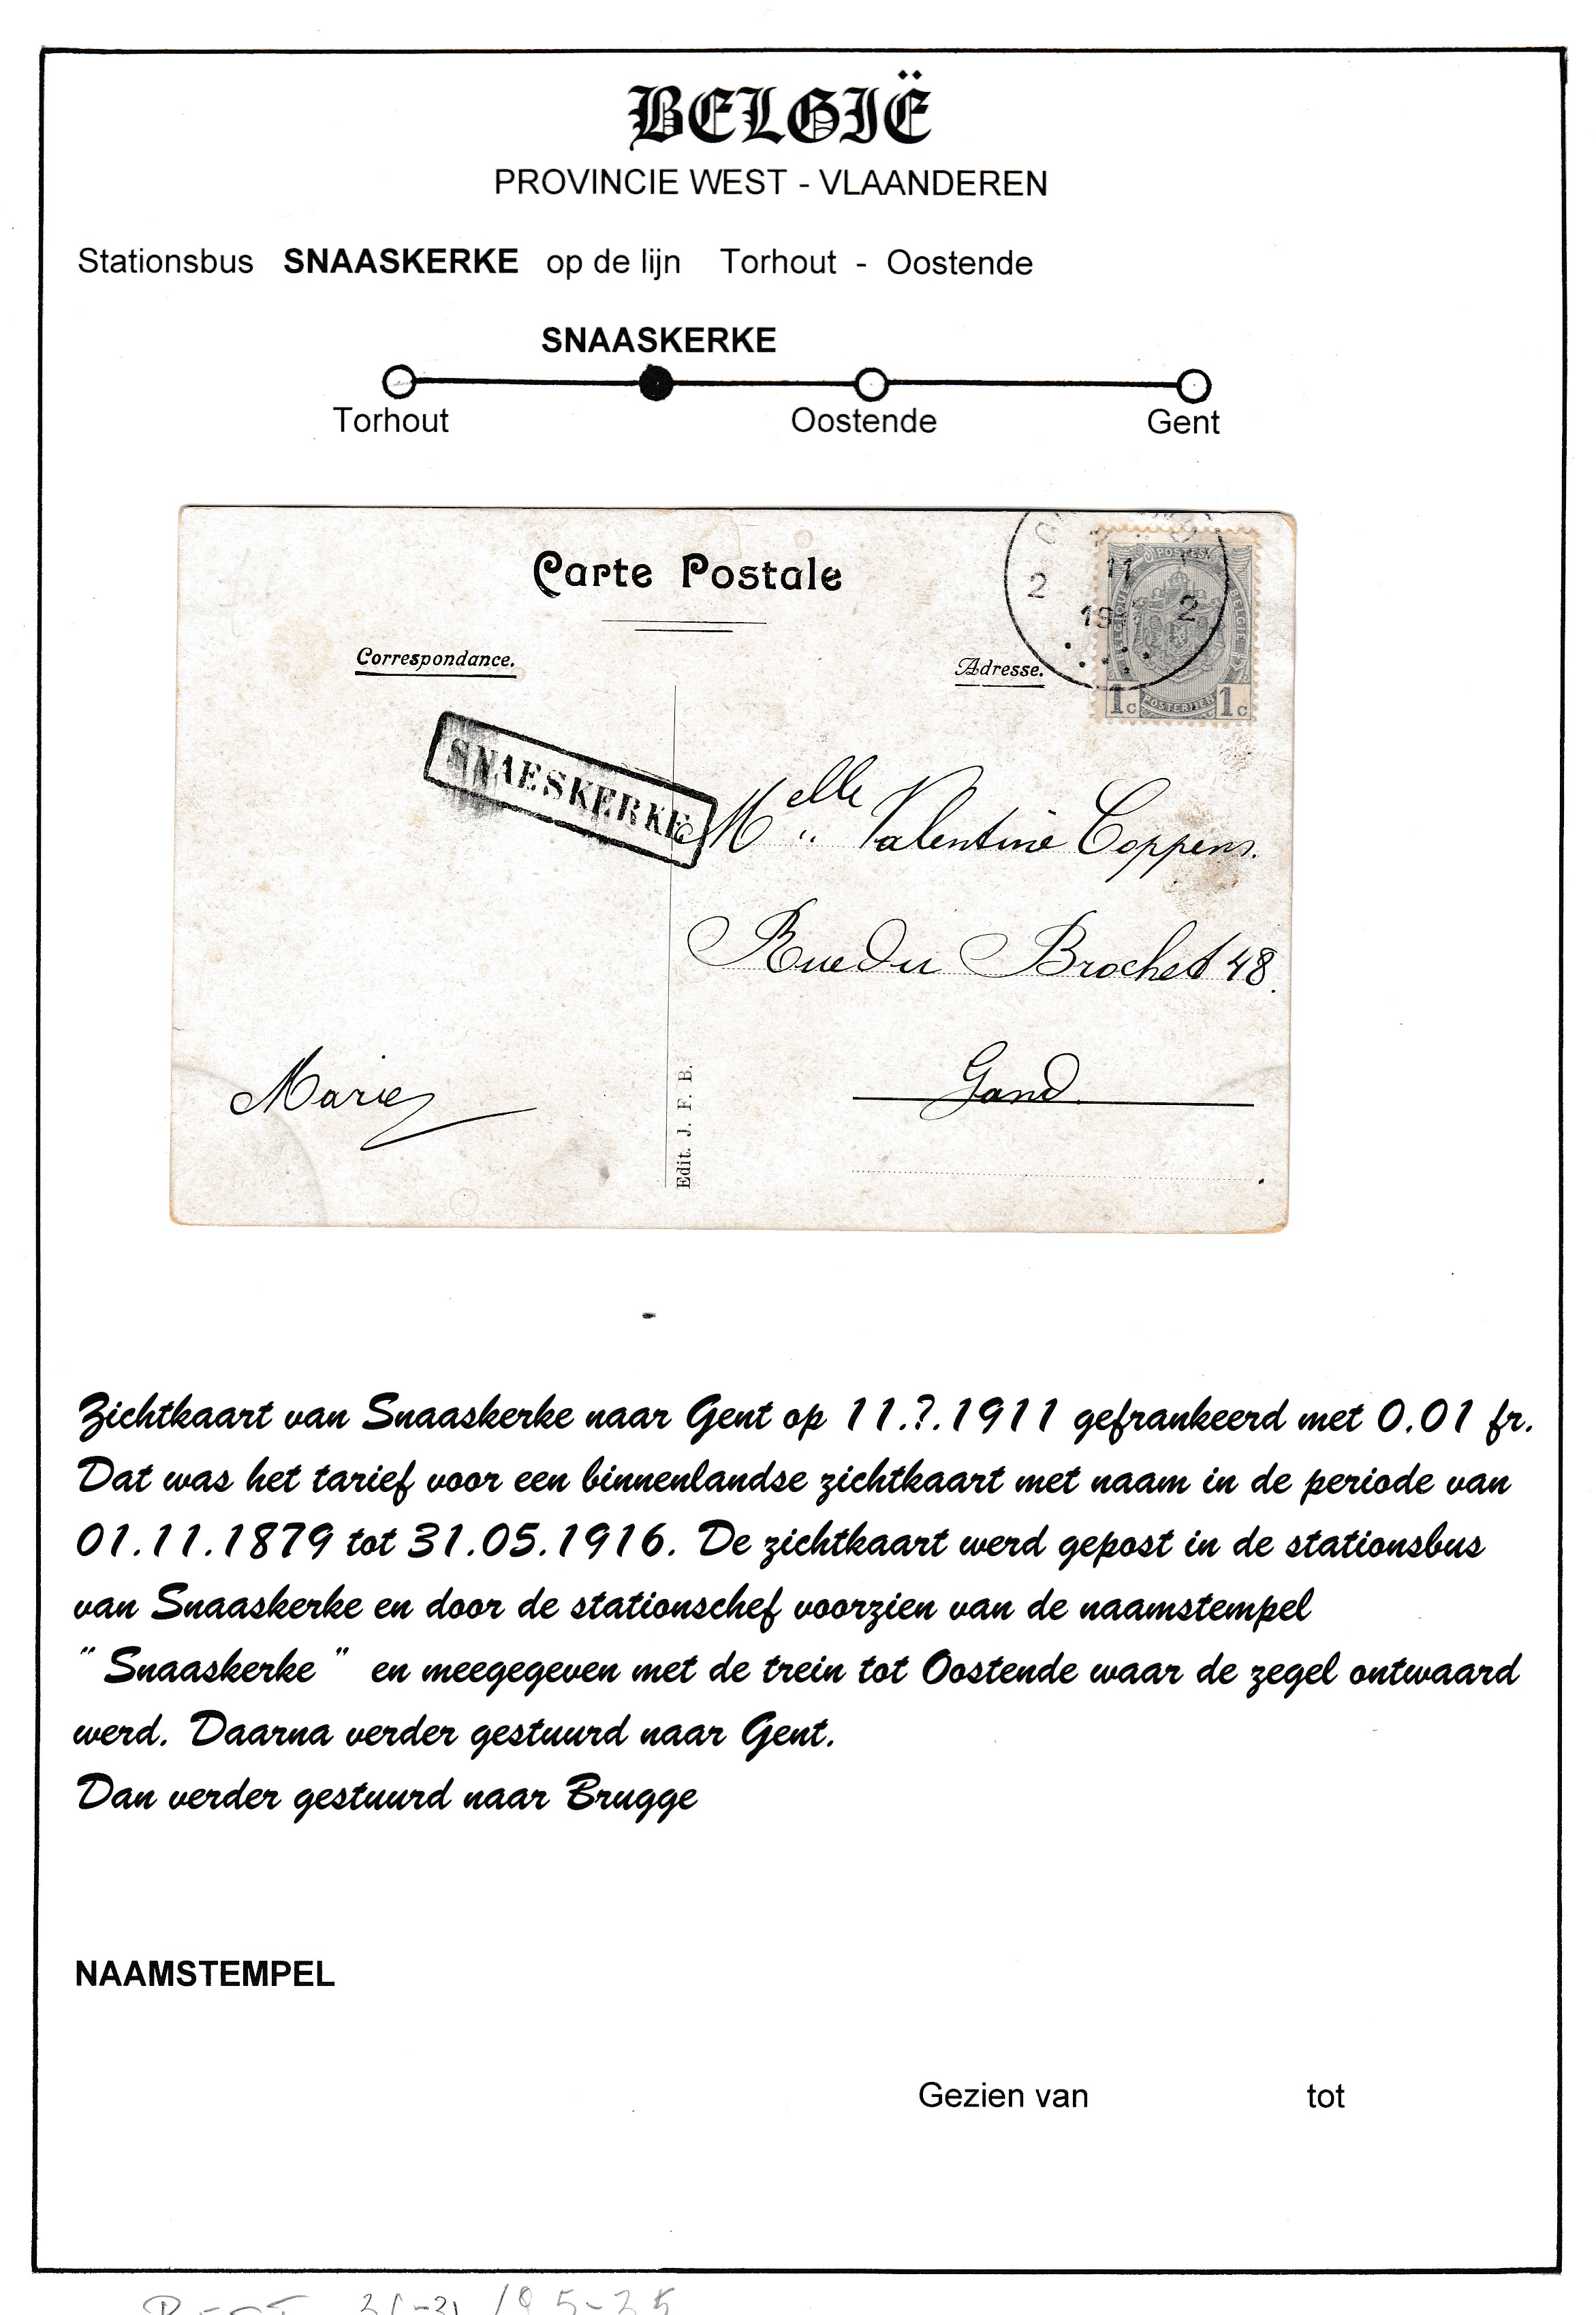 BELGIË
PROVINCIE WEST - VLAANDEREN
Stationsbus SNAASKERKE op de lijn Torhout - Oostende
SNAASKERKE
Torhout Oostende Gent
Carte Postale
Correspondance.
Adresse.
2 11 2
19
POSTES
BELGIQUE BELGIË
1c POSTERIJEN 1c
SNAESKERKE
Melle Valentine Coppens.
Rue du Brochet 48.
Marie
Gand.
Edit. J. F. B.
Zichtkaart van Snaaskerke naar Gent op 11.?.1911 gefrankeerd met 0.01 fr.
Dat was het tarief voor een binnenlandse zichtkaart met naam in de periode van
01.11.1879 tot 31.05.1916. De zichtkaart werd gepost in de stationsbus
van Snaaskerke en door de stationschef voorzien van de naamstempel
" Snaaskerke " en meegegeven met de trein tot Oostende waar de zegel ontwaard
werd. Daarna verder gestuurd naar Gent.
Dan verder gestuurd naar Brugge
NAAMSTEMPEL
Gezien van tot